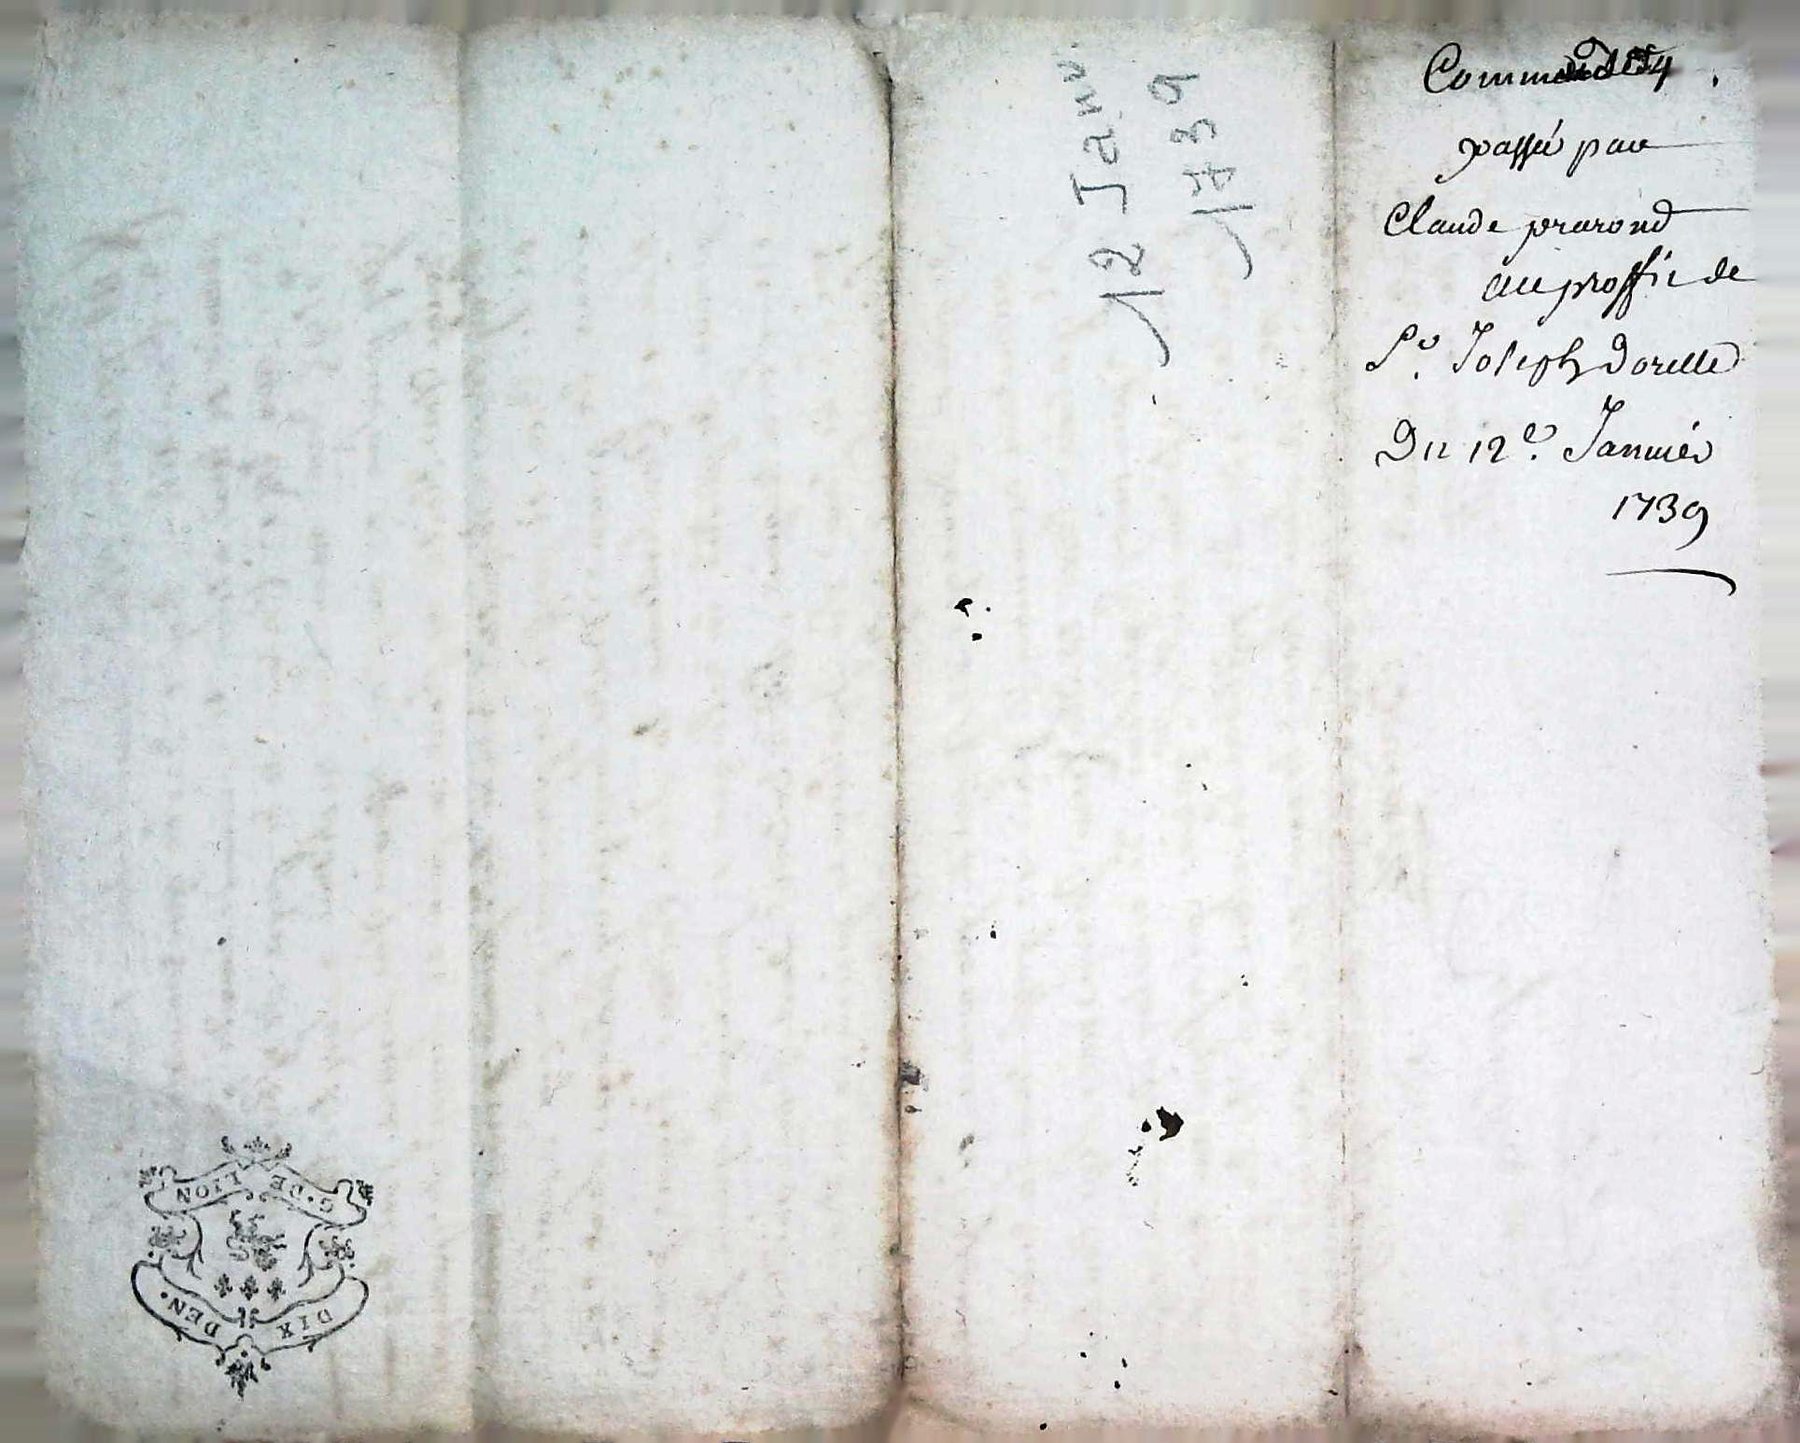 12 Janv.
1739
passée par
Claude prarond
au proffit de
Sr. Joseph Dorelle
Du 12e. Janvier
1739
G. DE LION
DIX DEN.